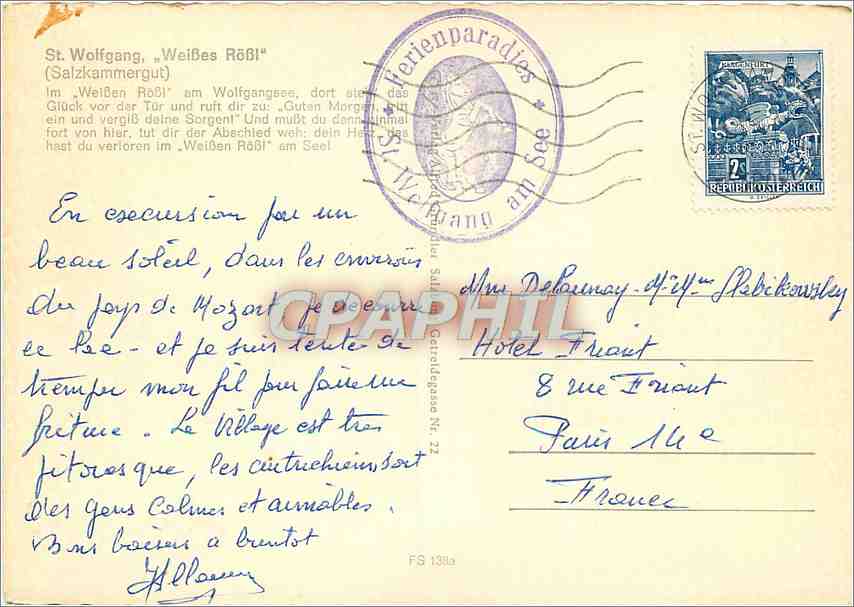 St. Wolfgang, „Weißes Rößl"
(Salzkammergut)
Im „Weißen Rößl" am Wolfgangsee, dort steht das
Glück vor der Tür und ruft dir zu: „Guten Morgen, tritt
ein und vergiß deine Sorgen! Und mußt du dann einmal
fort von hier, tut dir der Abschied weh: dein Herz, das
hast du verloren im „Weißen Rößl" am See!
* Ferienparadies *
St. Wolfgang am See
KLAGENFURT
2s
REPUBLIK ÖSTERREICH
ST. WO
En excursion par un
beau soleil, dans les environs
du pays de Mozart je découvre
ce lac - et je suis tentée de
tremper mon fil pour faire une
friture. Le Village est tres
pitoresque, les autrichiens sont
des gens Calmes et aimables.
Bons baisers a bientot
Mme Delaunay - Mr Mme Slabikowsky
Hotel Friant
8 rue Friant
Paris 14e
France
Getreidegasse Nr. 22
FS 138a
CPAPHIL